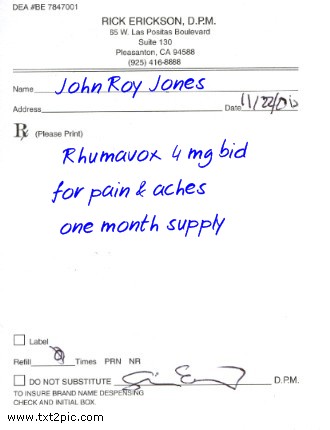 DEA #BE 7847001
RICK ERICKSON, D.P.M.
65 W. Las Positas Boulevard
Suite 130
Pleasanton, CA 94588
(925) 416-8888
Name John Roy Jones
Address Date 11/22/
Rx (Please Print)
Rhumavox 4 mg bid
for pain & aches
one month supply
Label
Refill 0 Times PRN NR
DO NOT SUBSTITUTE D.P.M.
TO INSURE BRAND NAME DESPENSING
CHECK AND INITIAL BOX.
www.txt2pic.com